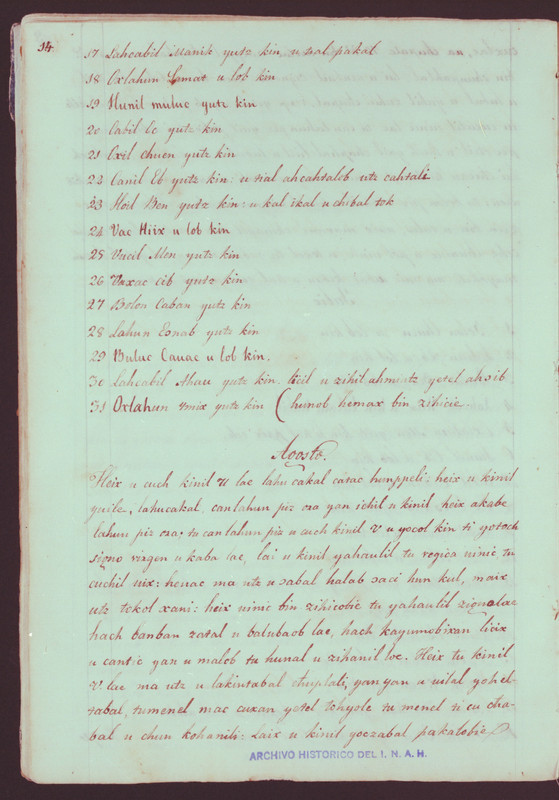 14.
17 Lahcabil Manik yutz kin, u sial pakal
18 Oxlahun Lamat u lob kin
19 Hunil muluc yutz kin
20 Cabil Oc yutz kin
21 Oxil chuen yutz kin
22 Canil Eb yutz kin: u sial ahcahsalob utz cahtali
23 Hoil Ben yutz kin: u kal ikal u chibal tok
24 Vac Hiix u lob kin
25 Vucil Men yutz kin
26 Vaxac cib yutz kin
27 Bolon Caban yutz kin
28 Lahun Esnab yutz kin
29 Buluc Cauac u lob kin.
30 Lahcabil Ahau yutz kin. licil u zihil ahmiatz yetel ahsib
31 Oxlahun Ymix yutz kin ( hunob hemax bin zihicie.
Agosto.
Heix u cuch kinil U lae lahu cakal catac hunppeli: heix u kinil
yaile, lahucakal, canlahun piz ora yan ichil u kinil, heix akabe
lahun piz ora; tu canlahun piz u cuch kinil V u yocol kin ti yotoch
signo virgen u kaba lae, lai u kinil yahaulil tu regica ninic, tu
cuchil nix: henac ma utz u sabal halab saci hun kul, maix
utz tokol xani: heix uinic bin zihicobic tu yahaulil zignolae
hach banban zatal u balubaob lae, hach kayumobixan licix
u cantic yan u malob tu hunal u zihanil loe. Heix tu kinil
V lae ma utz u lakintabal chuplali, yanyan u uilal yohel-
tabal, tumenel, mac cuxan yetel tchyole tu menel u cu cha-
bal u chun kohanili: Laix u kinil yoczabal pakalobie
ARCHIVO HISTORICO DEL I. N. A. H.